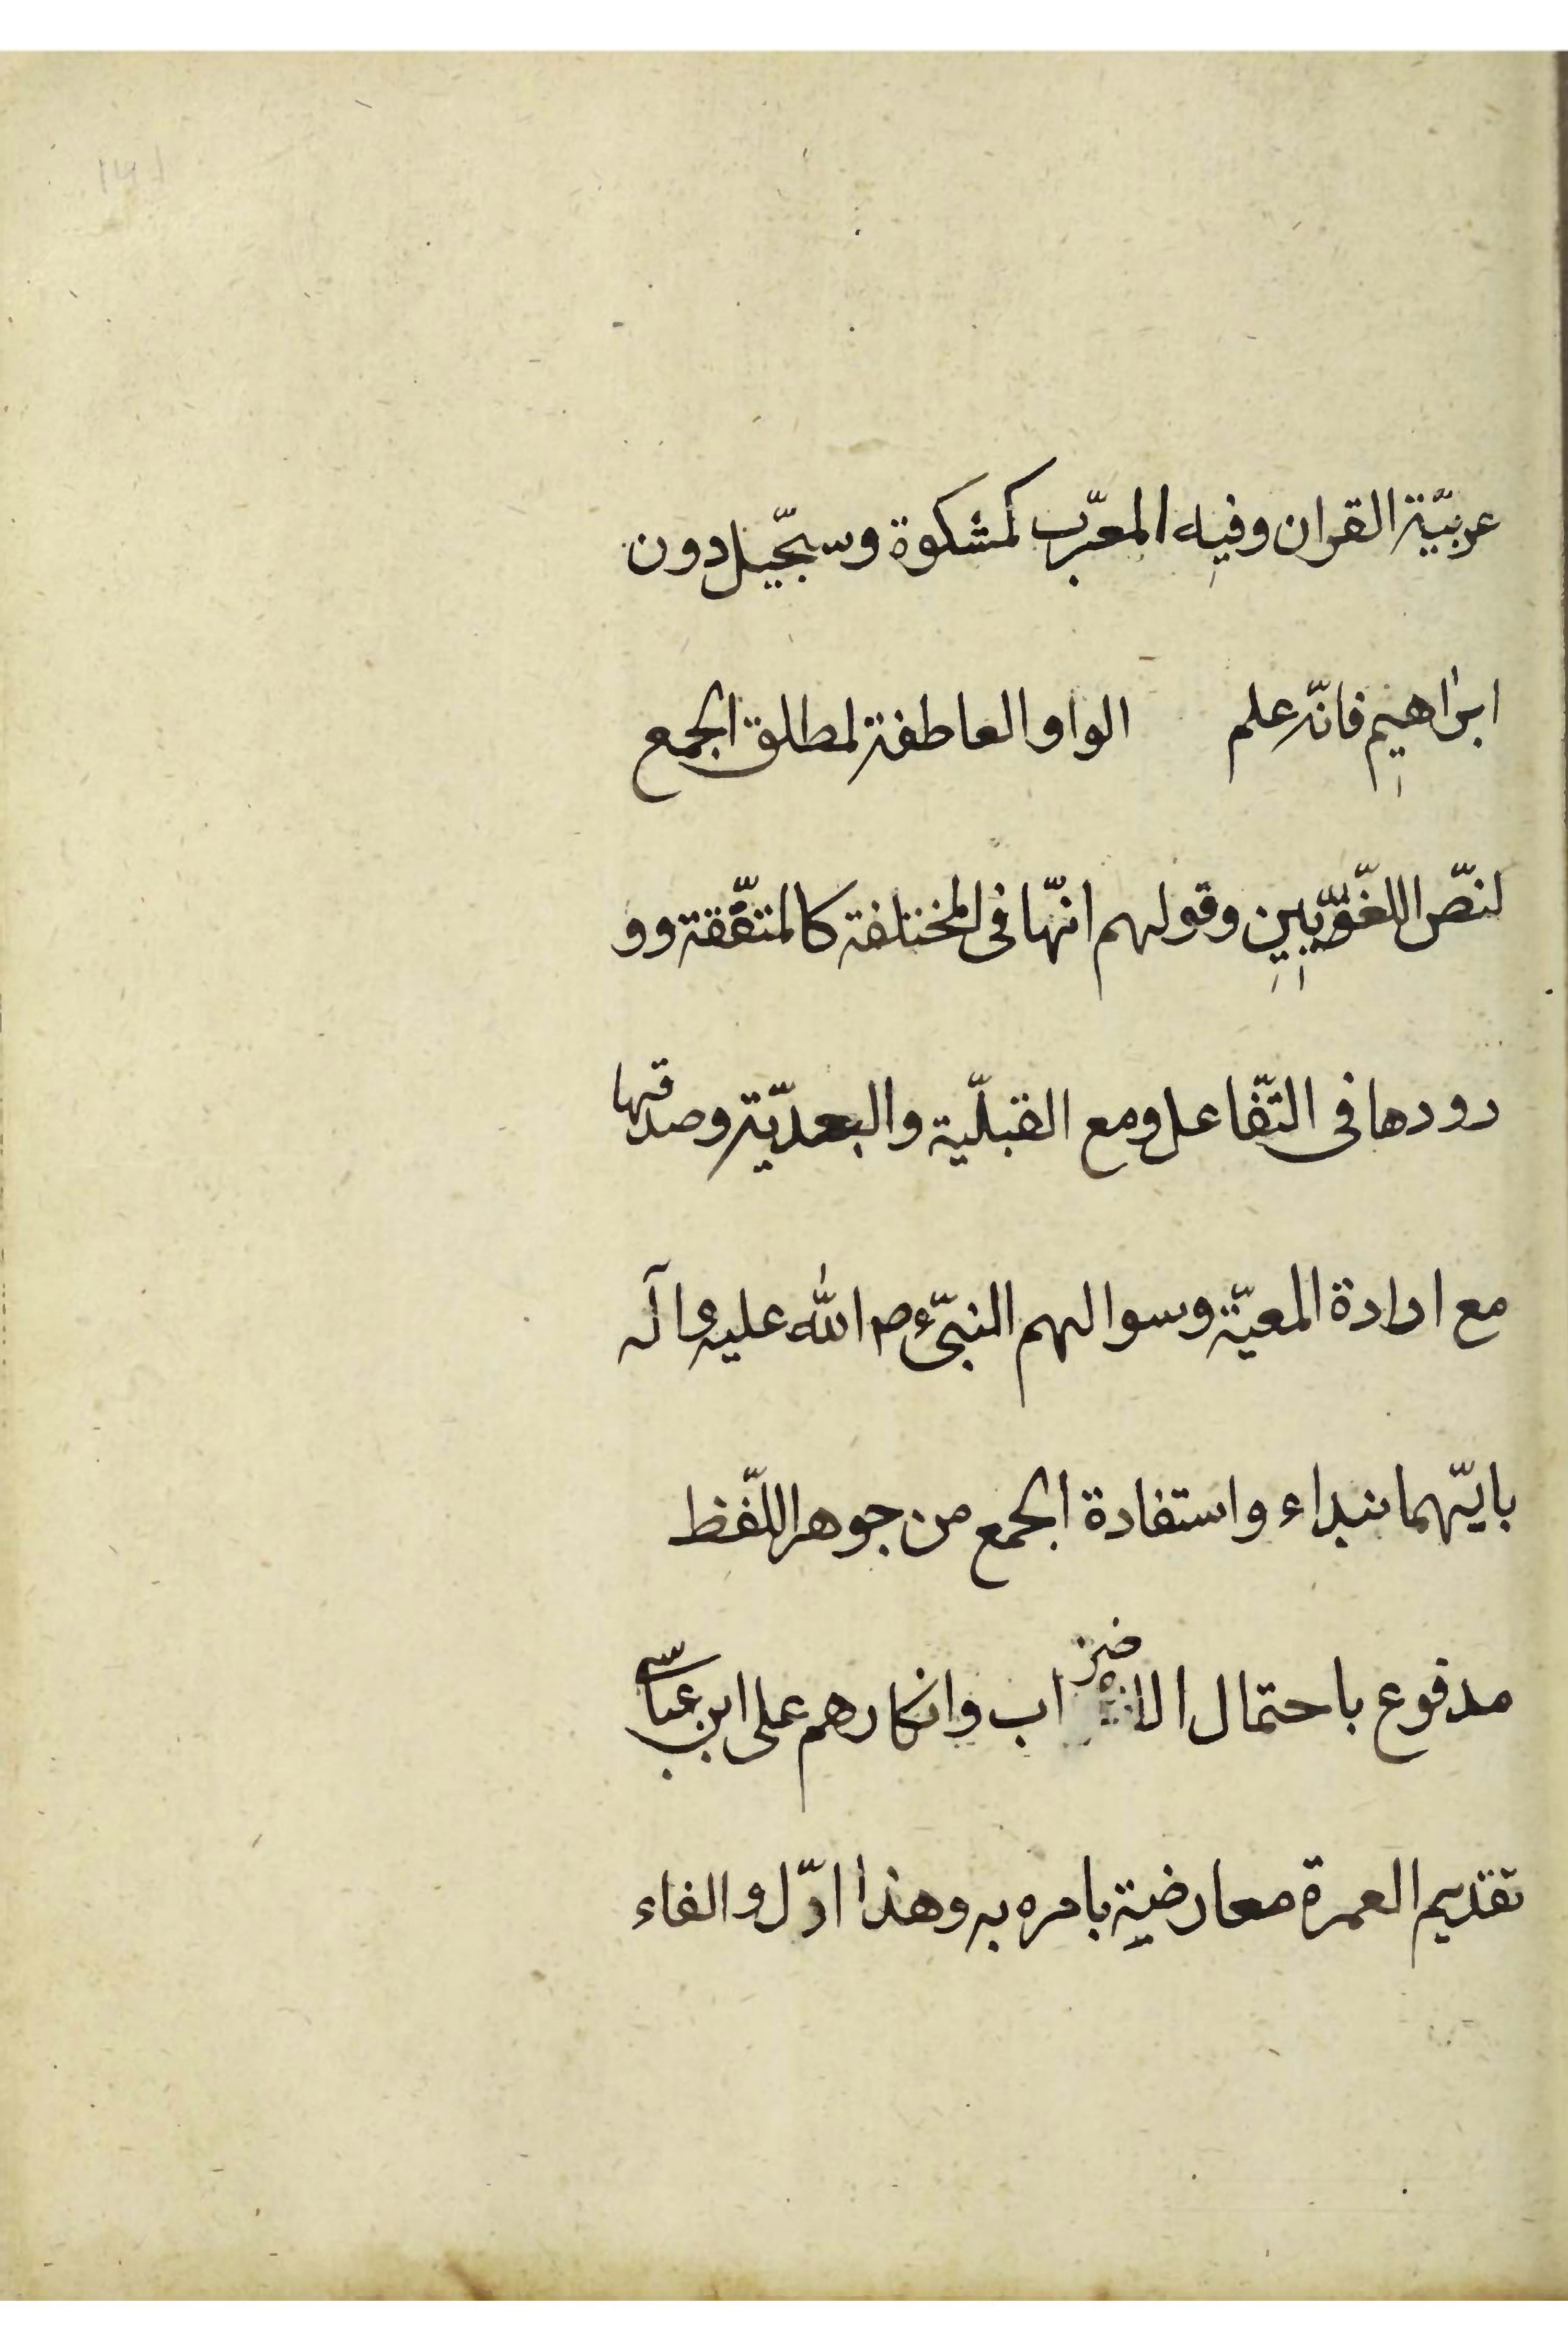 عربيّة القران وفيه المعرّب كمشكوة وسجّيل دون
ابراهيم فانّه علم الواو العاطفة لمطلق الجمع
لنصّ اللغّويّين وقولهم انّها فى المختلفة كالمتفّقة وو
رودها فى التّفاعل ومع القبلّية والبعديّة وصدقها
مع ارادة المعيّة وسوالهم النبىّ ص الله عليه وآله
بايّهما نبداء واستفادة الجمع من جوهر اللّفظ
مدفوع باحتمال الاضراب وانكارهم على ابن عبّاس
تقديم العمرة معارضية بامره به وهذا ادّل والفاء